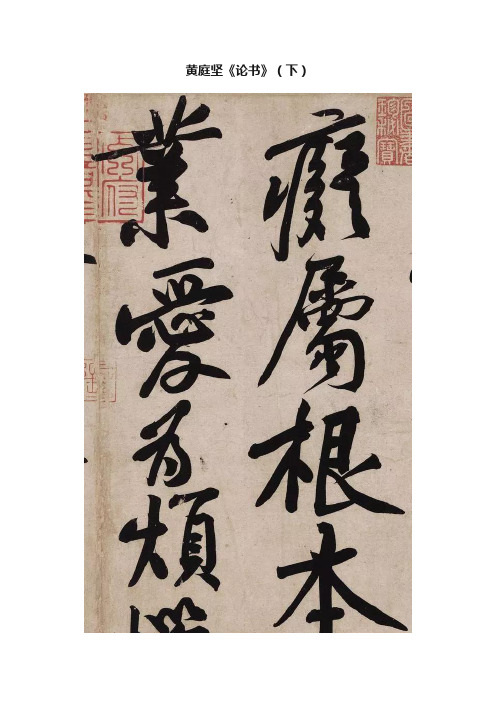 黄庭坚《论书》（下）
癡屬根本
業愛為煩